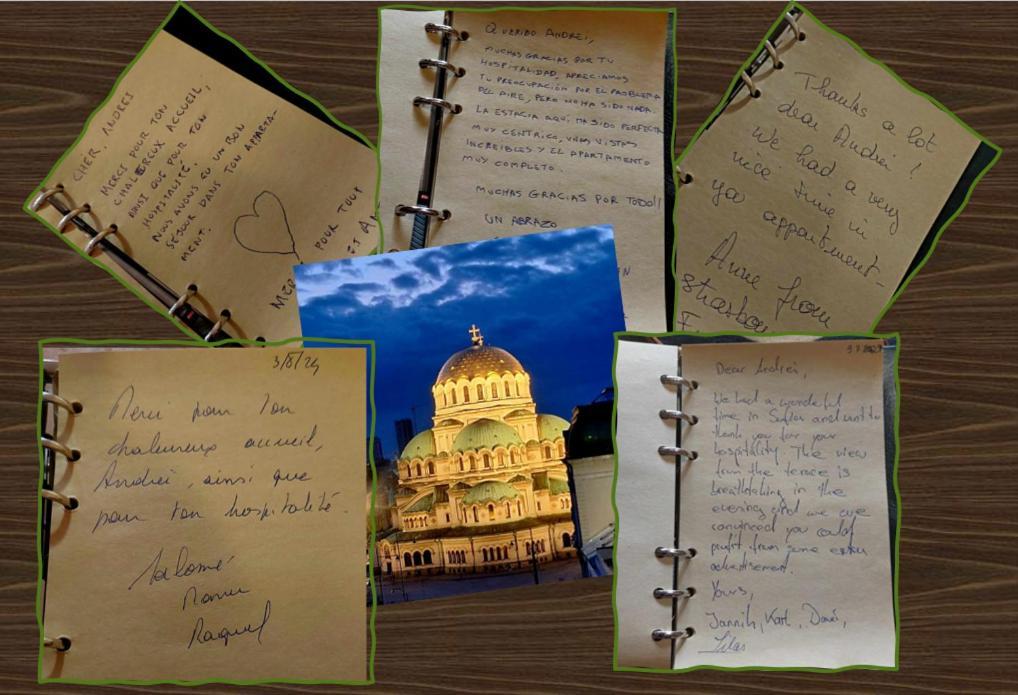 CHER ANDREI
MERCI POUR TON
CHALEREUX ACCUEIL,
AINSI QUE POUR TON
HOSPITALITÉ.
NOUS AVONS EU UN BON
SÉJOUR DANS TON APPARTA-
MENT.
POUR TOUT
QUERIDO ANDREI,
MUCHAS GRACIAS POR TU
HOSPITALIDAD, APRECIAMOS
TU PREOCUPACIÓN POR EL PROBLEMA
DEL AIRE, PERO NO HA SIDO NADA
LA ESTACIA AQUÍ HA SIDO PERFECTA
MUY CENTRICO, UNAS VISTAS
INCREIBLES Y EL APARTAMENTO
MUY COMPLETO.
MUCHAS GRACIAS POR TODO!!
UN ABRAZO
Thanks a lot
dear Andrei!
We had a very
nice time in
you appartment
Anne from
3/8/24
Merci pour ton
chaleureux accueil,
Andréi, ainsi que
pour ton hospitalité.
Salomé
Raquel
Dear Andrei,
We had a wonderful
time in Sofia and want to
thank you for your
hospitality. The view
from the terace is
breathtaking in the
evening and we are
convinced you could
profit from some extra
advertisement.
Yours,
Jannik, Karl,